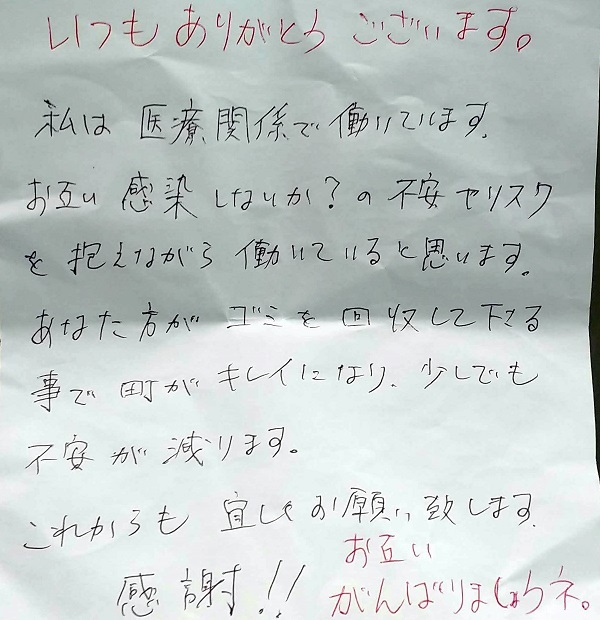 いつもありがとうございます。
私は医療関係で働いています。
お互い感染しないか？の不安やリスク
を抱えながら働いていると思います。
あなた方がゴミを回収して下さる
事で町がキレイになり、少しでも
不安が減ります。
これからも宜しくお願い致します。
感謝!!
お互い
がんばりましょうネ。